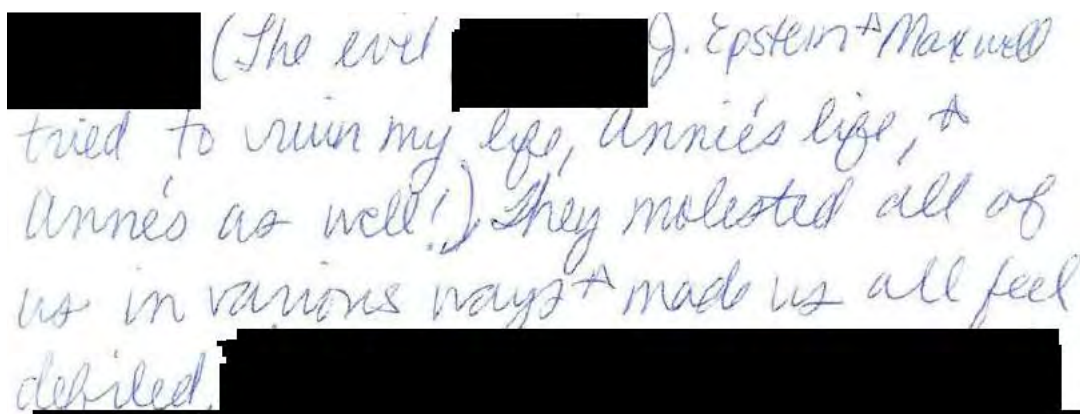 (The evil J. Epstein & Maxwell
tried to ruin my life, Annie's life, &
Anne's as well!) They molested all of
us in various ways & made us all feel
defiled.